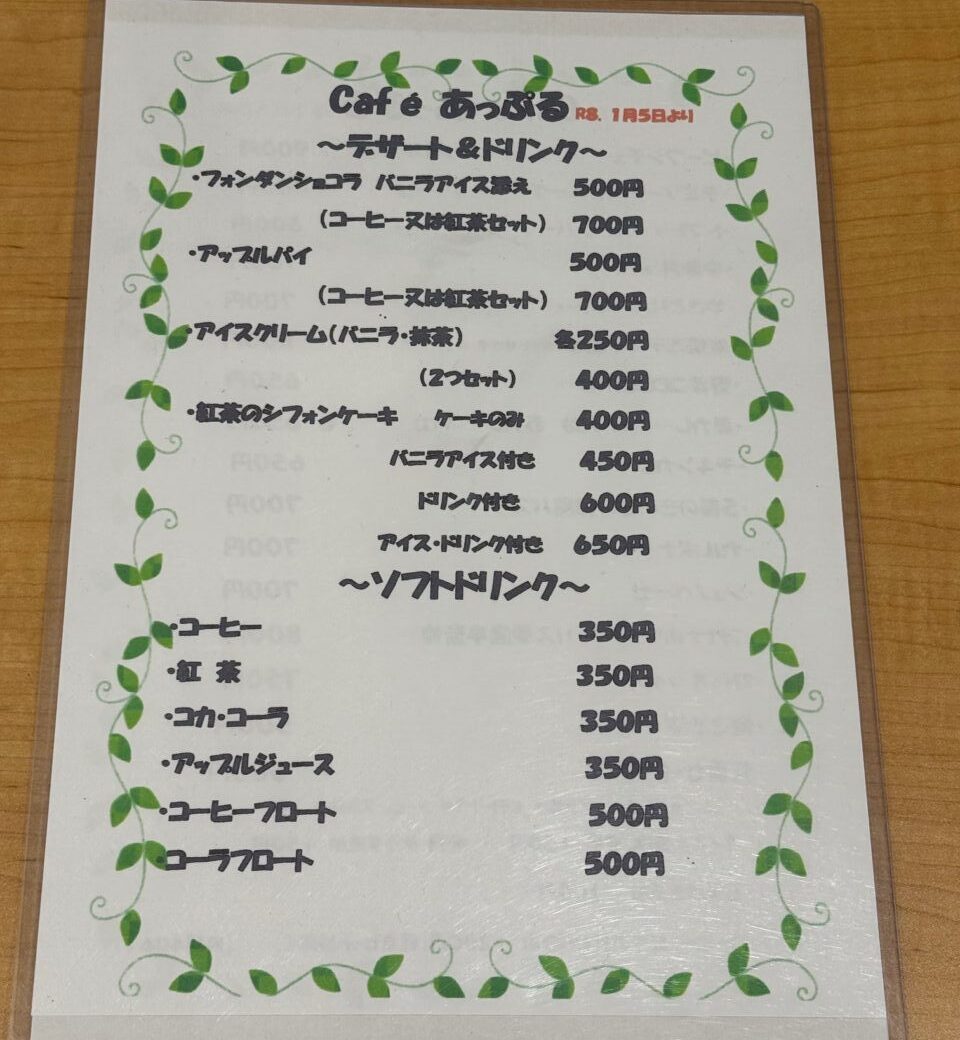 Café あっぷる R8. 1月5日より
～デザート＆ドリンク～
・フォンダンショコラ バニラアイス添え 500円
（コーヒー又は紅茶セット） 700円
・アップルパイ 500円
（コーヒー又は紅茶セット） 700円
・アイスクリーム（バニラ・抹茶） 各250円
（2つセット） 400円
・紅茶のシフォンケーキ ケーキのみ 400円
バニラアイス付き 450円
ドリンク付き 600円
アイス・ドリンク付き 650円
～ソフトドリンク～
・コーヒー 350円
・紅 茶 350円
・コカ・コーラ 350円
・アップルジュース 350円
・コーヒーフロート 500円
・コーラフロート 500円